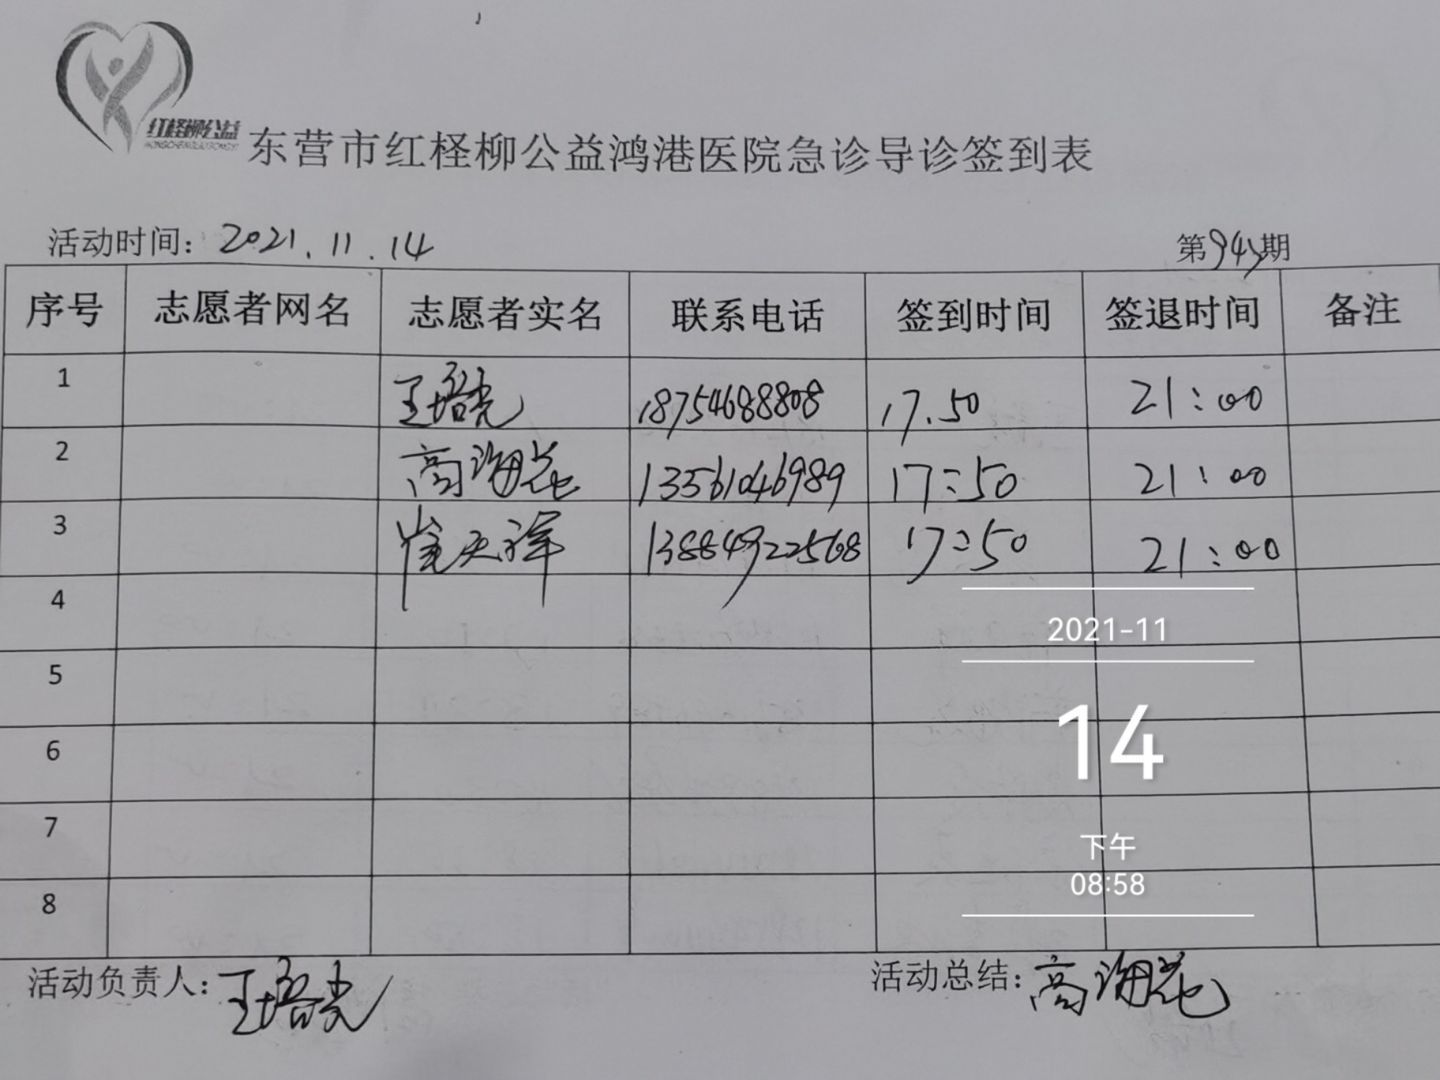 红柽柳公益
东营市红柽柳公益鸿港医院急诊导诊签到表
活动时间：2021.11.14 第943期
序号 志愿者网名 志愿者实名 联系电话 签到时间 签退时间 备注
1 王培光 18754688808 17.50 21:00
2 高海花 13561046989 17:50 21:00
3 崔天祥 13884922568 17:50 21:00
4
2021-11
5
6
14
7
下午
08:58
8
活动负责人：王培光 活动总结：高海花